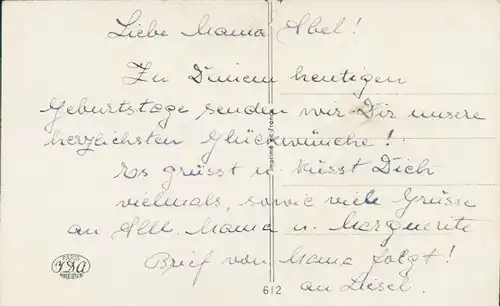 Liebe Mama Abel!
Zu Deinem heutigen
Geburtstage senden wir Dir unsere
herzlichsten Glückwünsche!
Es grüsst u. küsst Dich
vielmals, sowie viele Grüsse
an Alle. Mama u. Marguerite
Brief von Mama folgt!
an Liesel.
Imprimé en France
PARIS
IDA
612